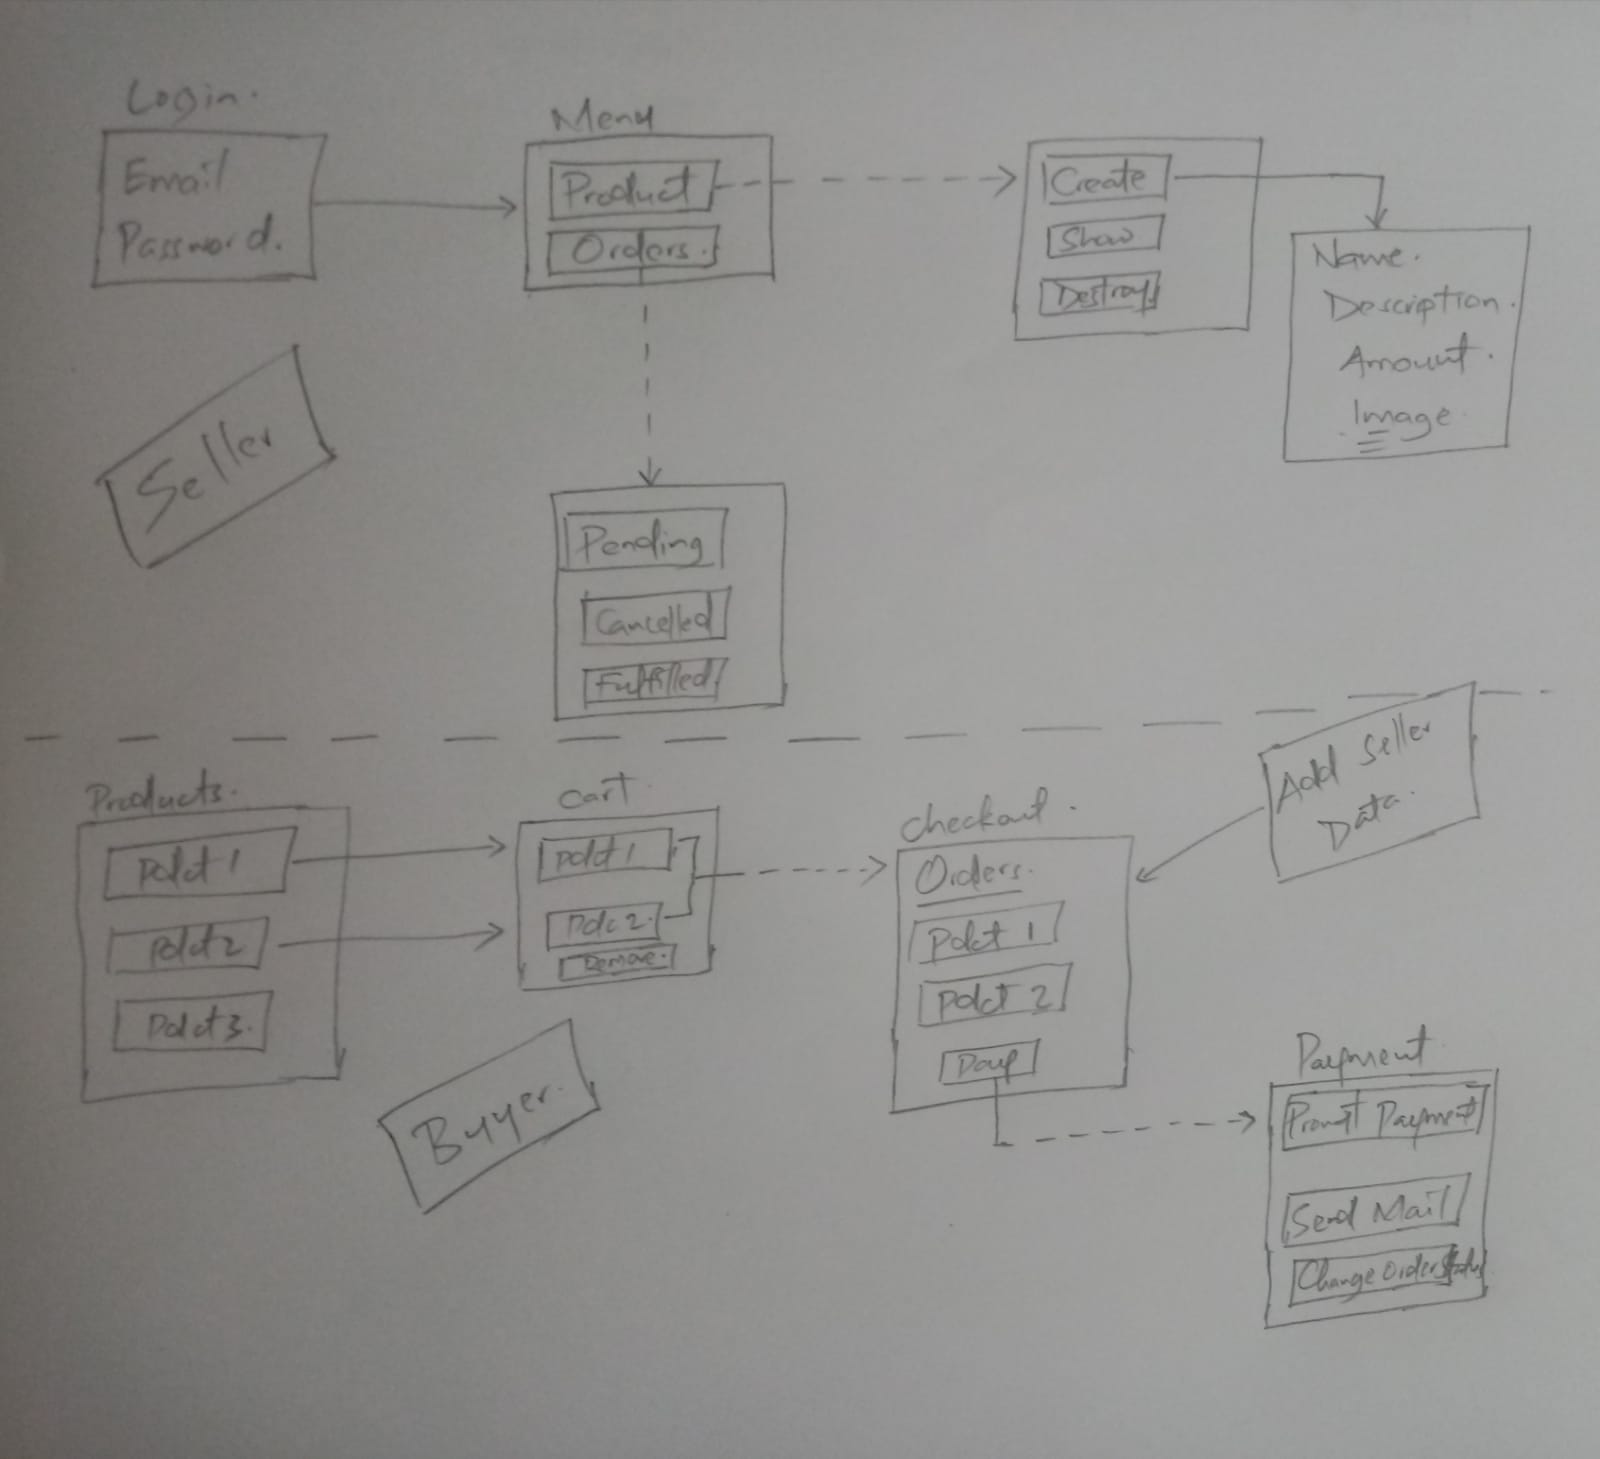 Login.
Email
Password.
Menu
Product
Orders.
Create
Show
Destroy
Name.
Description.
Amount.
Image.
Seller
Pending
Cancelled
Fulfilled
Add Seller
Data.
Products.
Pdct 1
Pdct 2
Pdct 3.
Cart.
Pdct 1
Pdc 2.
Remove.
Checkout.
Orders.
Pdct 1
Pdct 2
Pay
Buyer.
Payment
Prompt Payment
Send Mail
Change Order Status